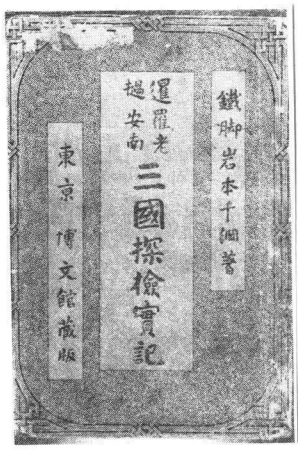 鐵脚岩本千綱著
暹羅老
撾安南
三國探檢實記
東京 博文館藏版